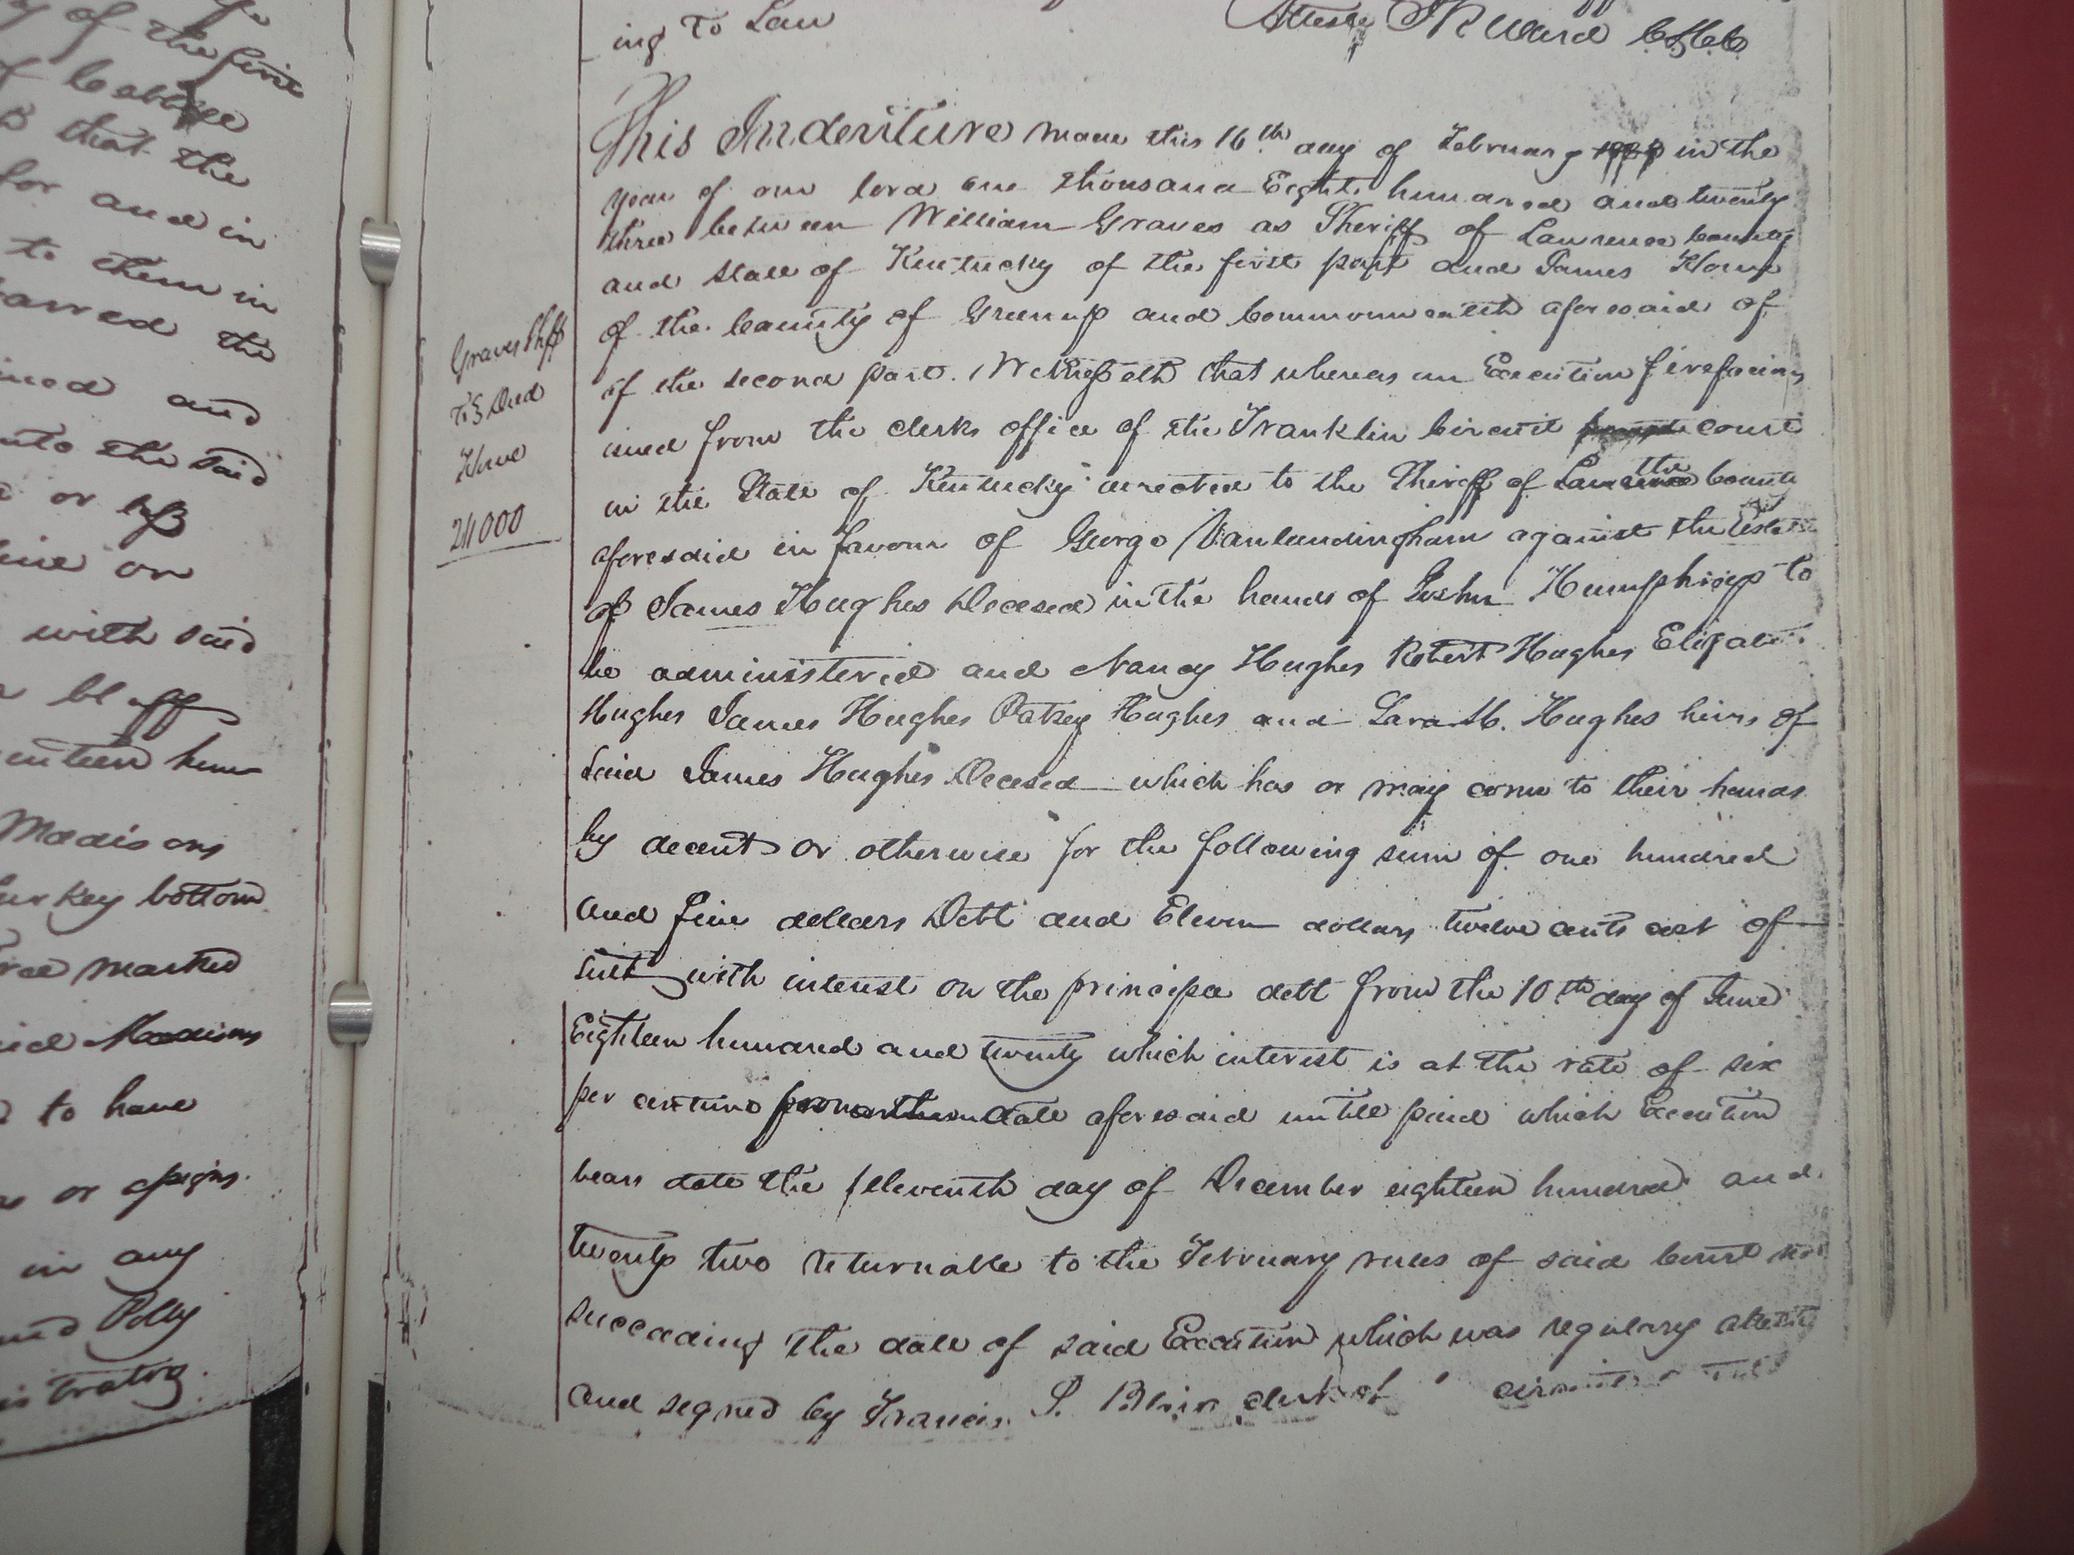 of the first
that the
for and in
to them in
the
and
unto the said
or
or
with said
bluff
Madisons
bottom
marked
Madisons
to have
or assigns
in any
Polly
ing To Law
Atteste J R Ward
This Indenture made this 16th day of February in the
year of our lord one thousand Eight hundred and twenty
three between William Graves as Sheriff of Lawrence County
and State of Kentucky of the first part and James Howe
of the County of Greenup and Commonwealth aforesaid of
of the second part. Witnesseth that whereas an Execution firefacias
isued from the clerks office of the Franklin Circuit court
in the State of Kentucky directed to the Sheriff of the County
aforesaid in favour of George Vanlandingham against the Estate
of James Hughes Decesed in the hands of Joshua Humphreys to
be administered and Nancy Hughes Robert Hughes Elizabeth
Hughes James Hughes Patsey Hughes and Sara M. Hughes heirs of
said James Hughes Decesed which has or may come to their hands
by decent or otherwise for the following sum of one hundred
and five dollars Debt and Eleven dollars twelve cents cost of
suit with interest on the principle debt from the 10th day of June
Eighteen hundred and twenty which interest is at the rate of six
per centum date aforesaid untill paid which Execution
bears date the eleventh day of December eighteen hundred and
twenty two returnable to the February rules of said Court
succeeding the date of said Execution which was regularly
and signed by Francis P. Blair clerk of
Graves Shff
To Deed
Howe
24000